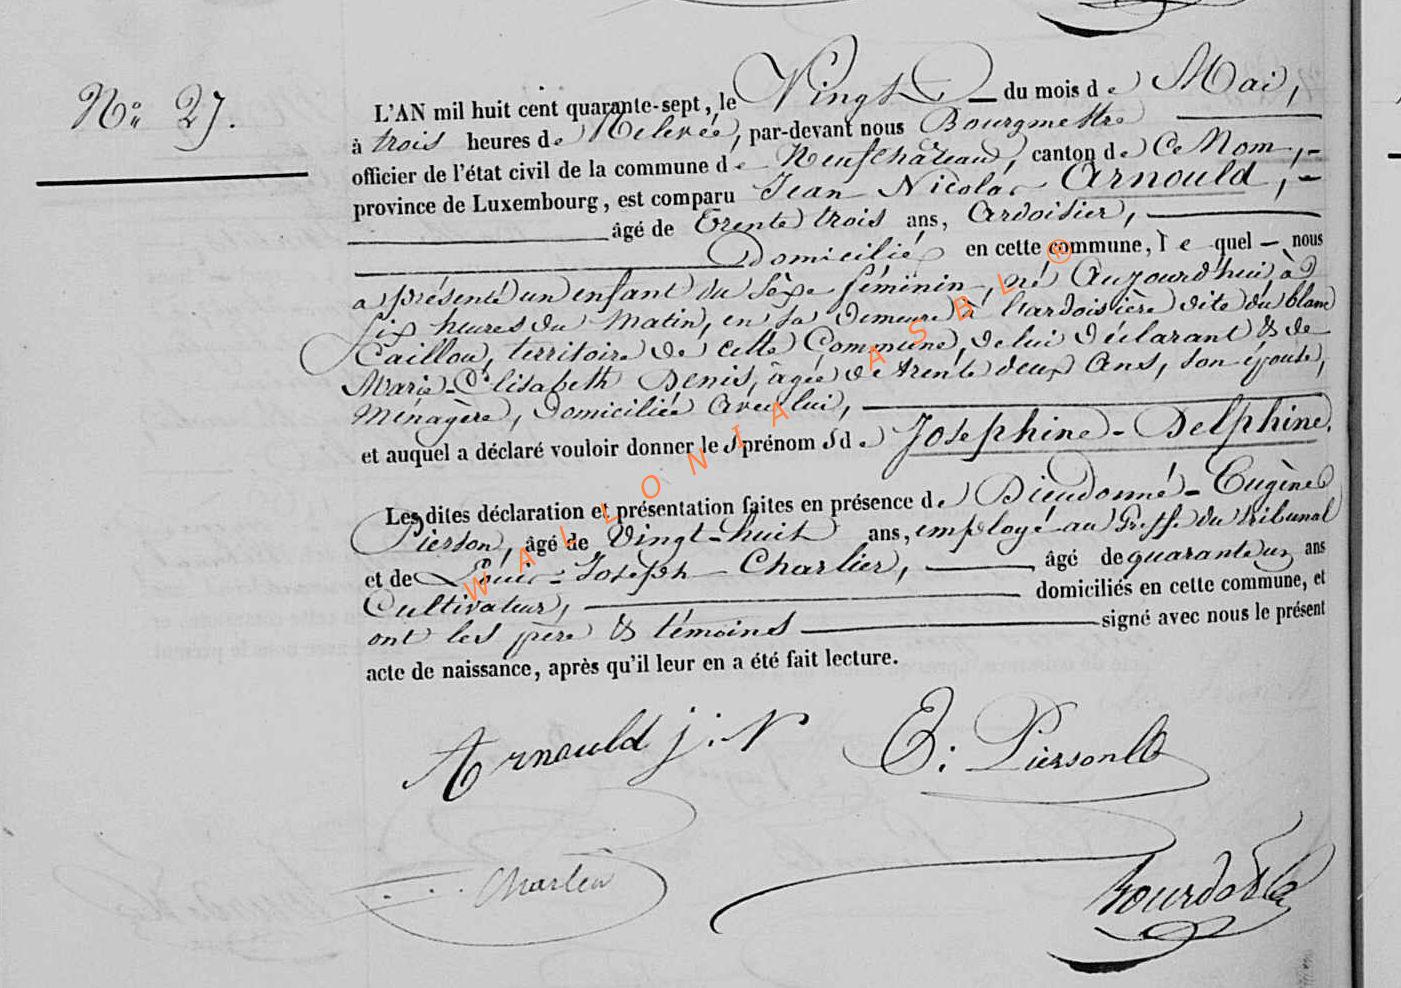 N° 27.
L'AN mil huit cent quarante-sept, le Vingt du mois de Mai,
à trois heures de Relevée, par-devant nous Bourgmestre
officier de l'état civil de la commune de Neufchâteau, canton de Ce Nom,
province de Luxembourg, est comparu Jean Nicolas Arnould,
âgé de trente trois ans, Ardoisier,
Domicilié en cette commune, lequel nous
a présenté un enfant du sèxe féminin, né Aujourd'hui à
six heures du Matin, en sa Demeure à l'ardoisière dite du blanc
Caillou, territoire de cette Commune, de lui Déclarant & de
Marie-Elisabeth Denis, âgée de trente deux Ans, son épouse,
Ménagère, Domiciliée avec lui,
et auquel a déclaré vouloir donner les prénoms de Josephine-Delphine.
Les dites déclaration et présentation faites en présence de Dieudonné-Eugène
Pierson, âgé de Vingt-huit ans, employé au Greffe du tribunal
et de Louis-Joseph Charlier, âgé de quarante un ans
Cultivateur, domiciliés en cette commune, et
ont les père & témoins signé avec nous le présent
acte de naissance, après qu'il leur en a été fait lecture.
Arnould j. N E: Pierson
Charlier
WALLONIA ASBL ®